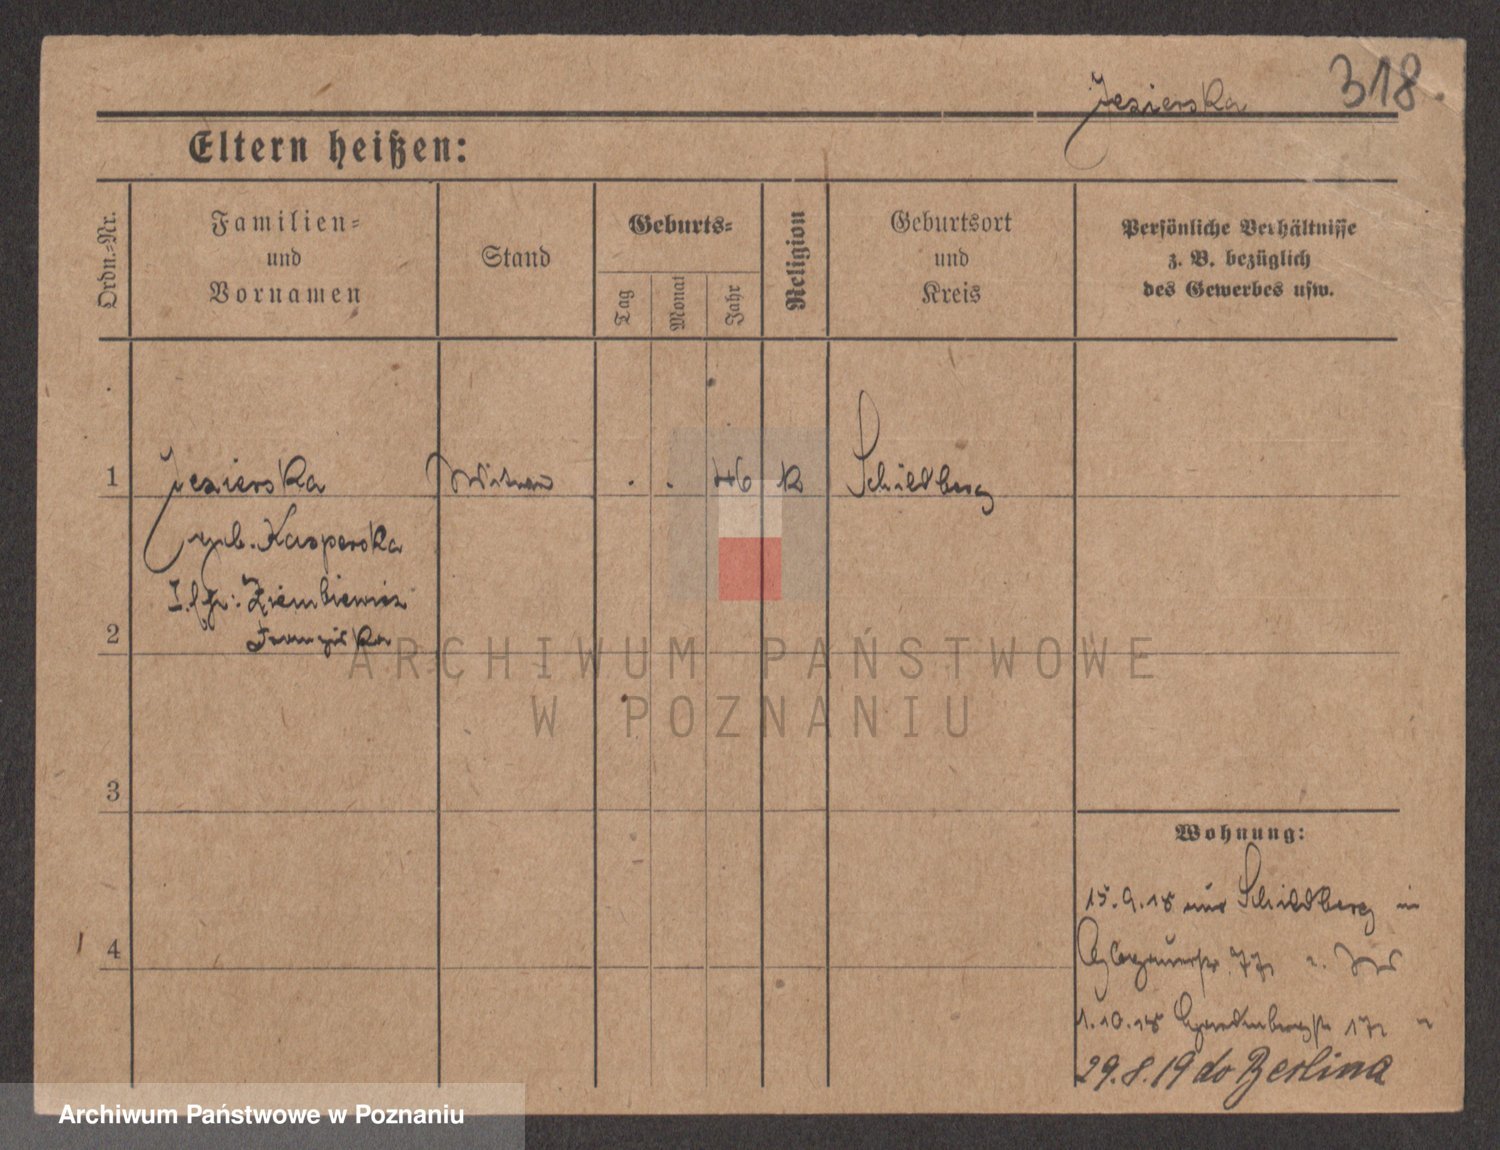 318.
Jezierska
Eltern heißen:
Ordn.-Nr.
Familien-
und
Vornamen
Stand
Geburts-
Tag
Monat
Jahr
Religion
Geburtsort
und
Kreis
Persönliche Verhältnisse
z. B. bezüglich
des Gewerbes usw.
1 Jezierska Witwe . . 46 K Schildberg
geb. Kasperska
Ziemkiewicz
2 Franziska
3
4
ARCHIWUM PAŃSTWOWE
W POZNANIU
Wohnung:
15.9.18 aus Schildberg in
77
1.10.18 17
29.8.19 do Berlina
Archiwum Państwowe w Poznaniu